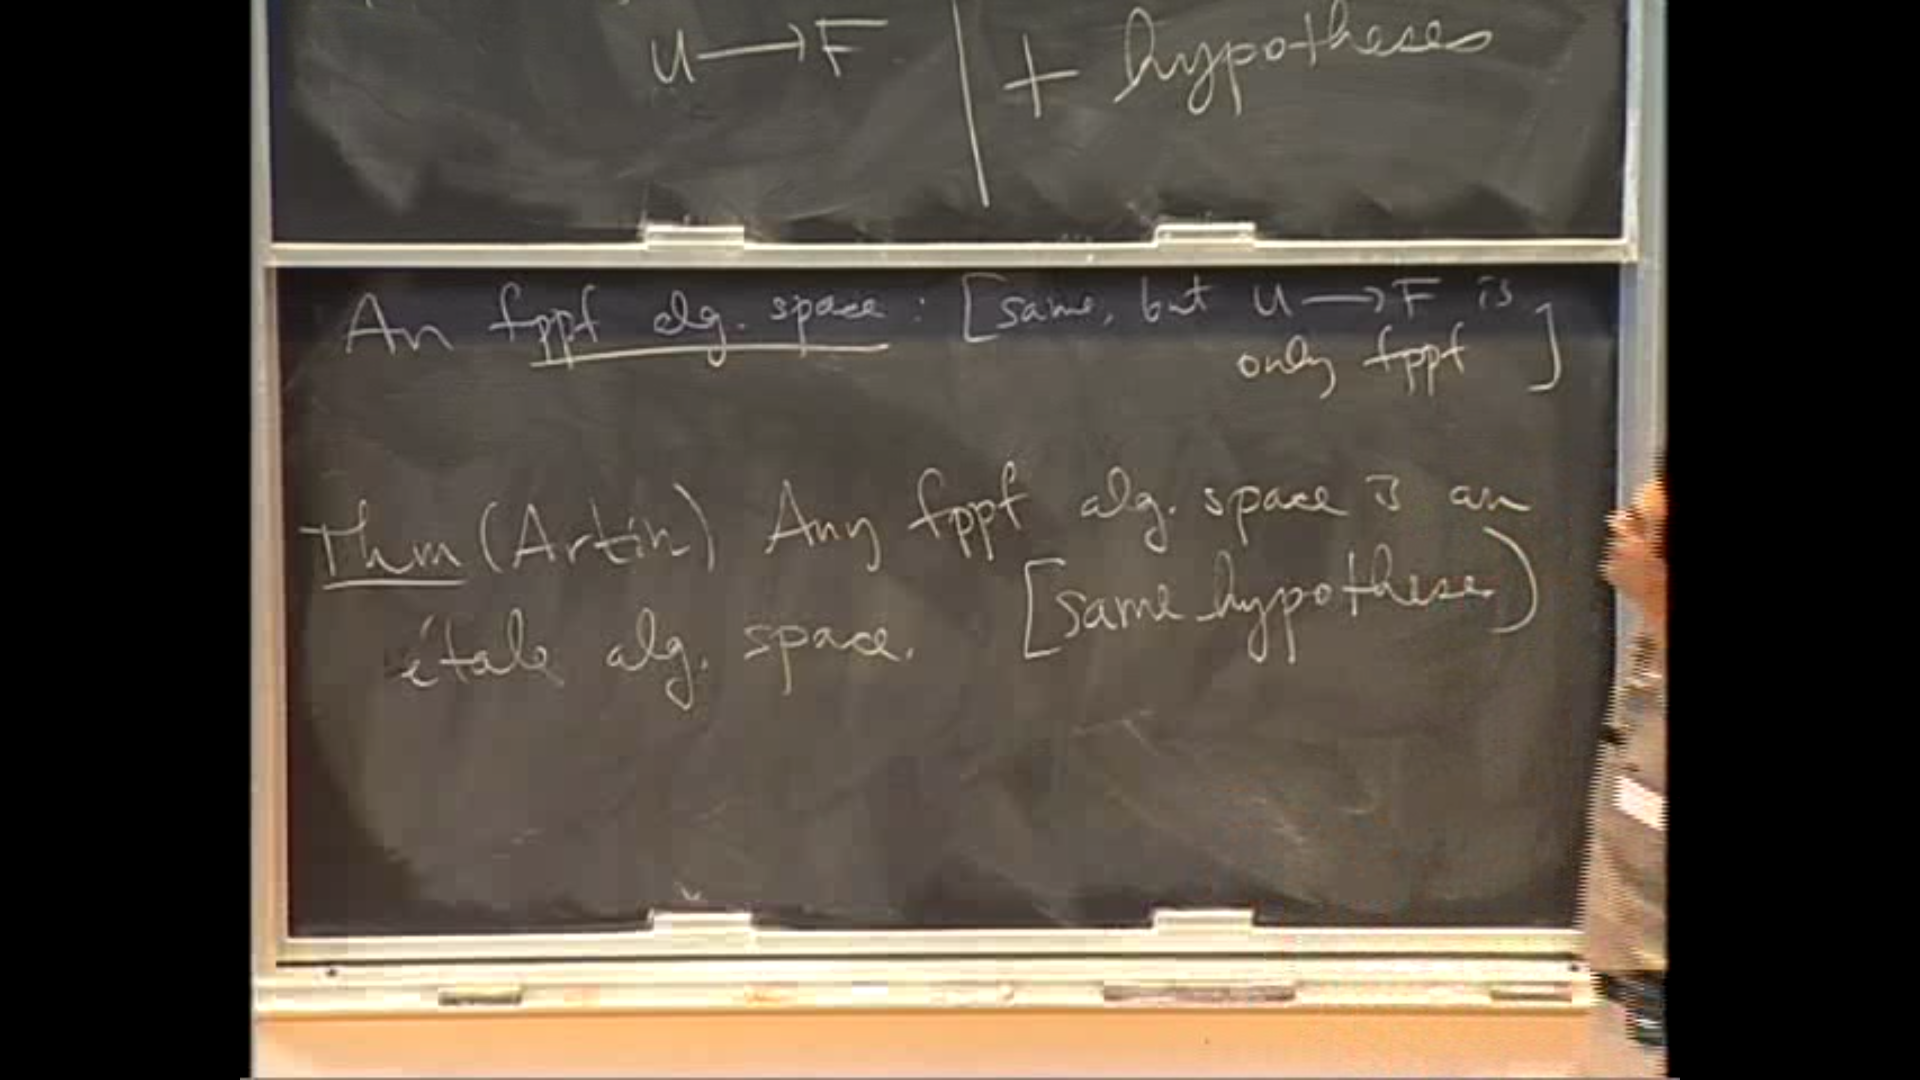 U → F | + hypotheses
An fppf alg. space : [same, but U → F is
only fppf ]
Thm (Artin) Any fppf alg. space is an
étale alg. space. [same hypotheses)